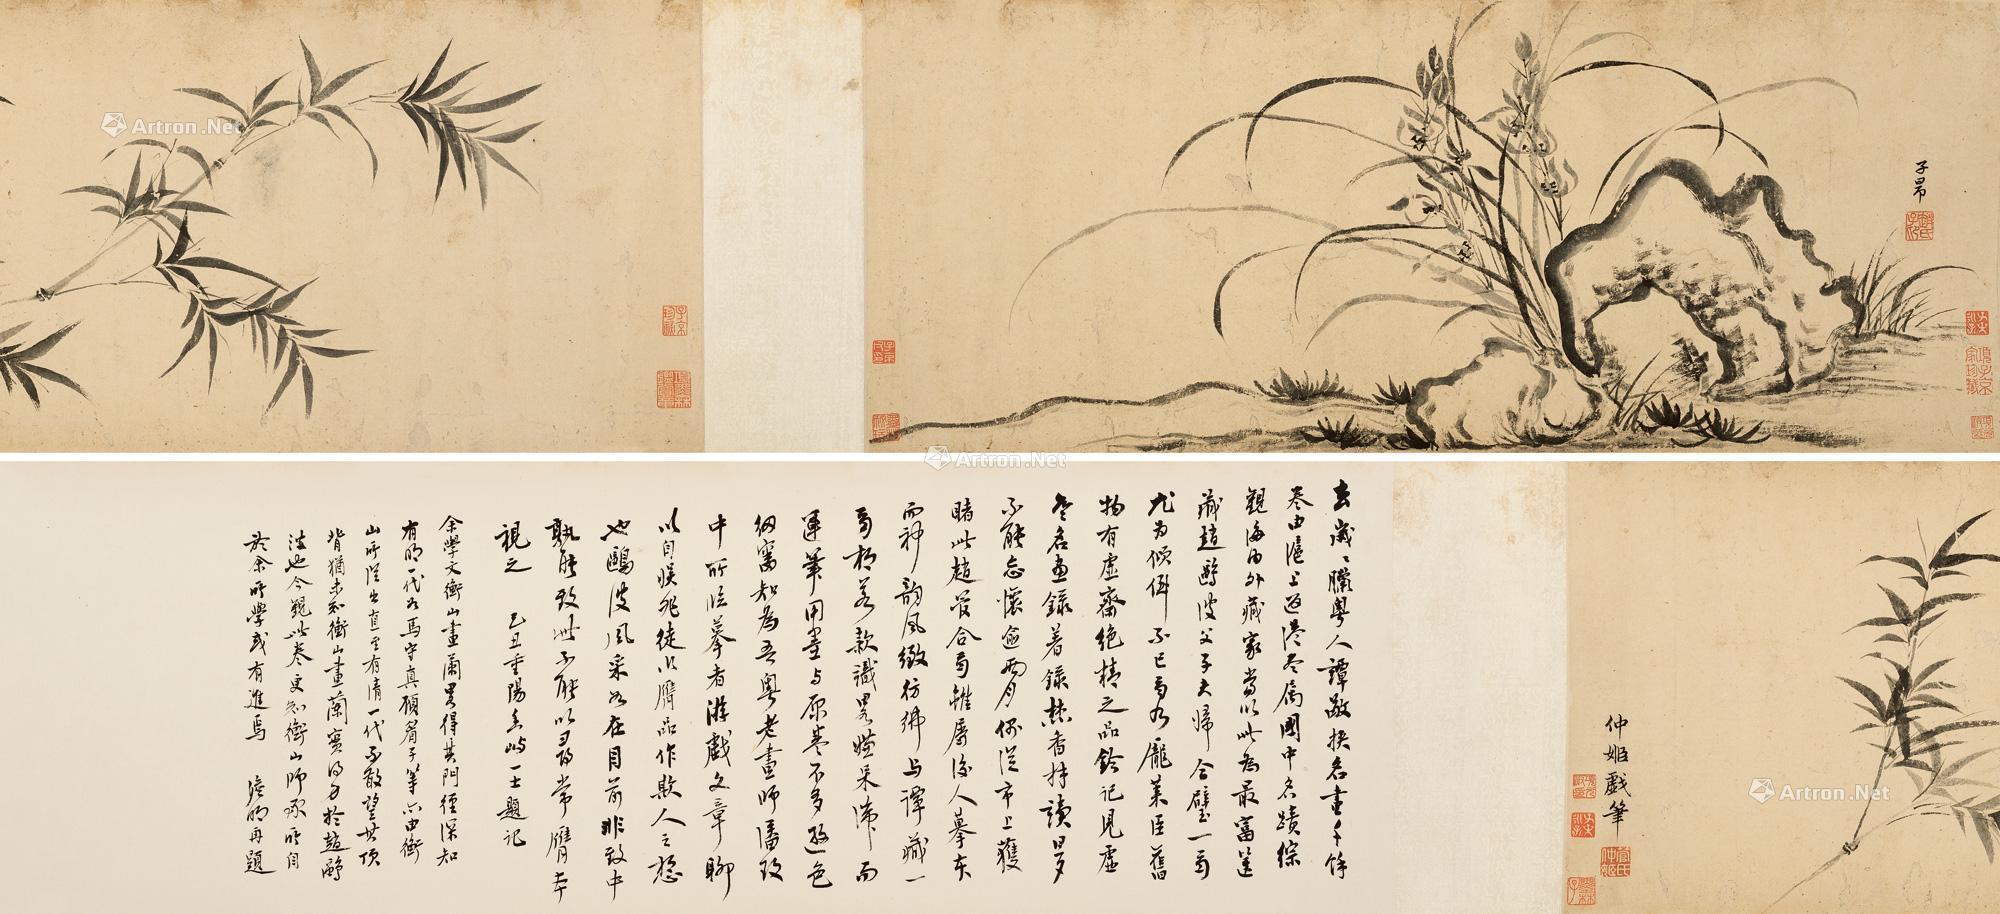 子昂
Artron.Net
Artron.Net
仲姬戲筆
Artron.Net
去歲歲臘粵人譚敬挾名畫千餘
卷由滬上返港尽屬國中名蹟綜
觀海內外藏家當以此為最富筐
藏趙鷗波父子夫婦合璧一卷
尤為傾倒不已
物有虛齋絕精之品鈐記見虛
齋名畫錄著錄焚香拜讀日夕
不能忘懷逾兩月偶從市上獲
睹此趙管合卷雖屬後人摹本
而神韻風緻彷彿與譚藏一
卷相若款識
運筆用墨与原卷不多遜色
細審知為吾粵老畫師潘致
中所臨摹者游戲文章聊
以自娛非徒以贋品作欺人之
也鷗波風采如在目前非致中
孰能致此不能以尋常贋本
視之 乙丑重陽 士題記
余學文衡山畫蘭略得其門徑深知
有明一代如馬守真顧眉子等亦由衡
山所從出直至有清一代不敢望其項
背猶未知衡山畫蘭實得力於趙鷗
波也今觀此卷更知衡山師承所自
於余所學或有進焉 再題